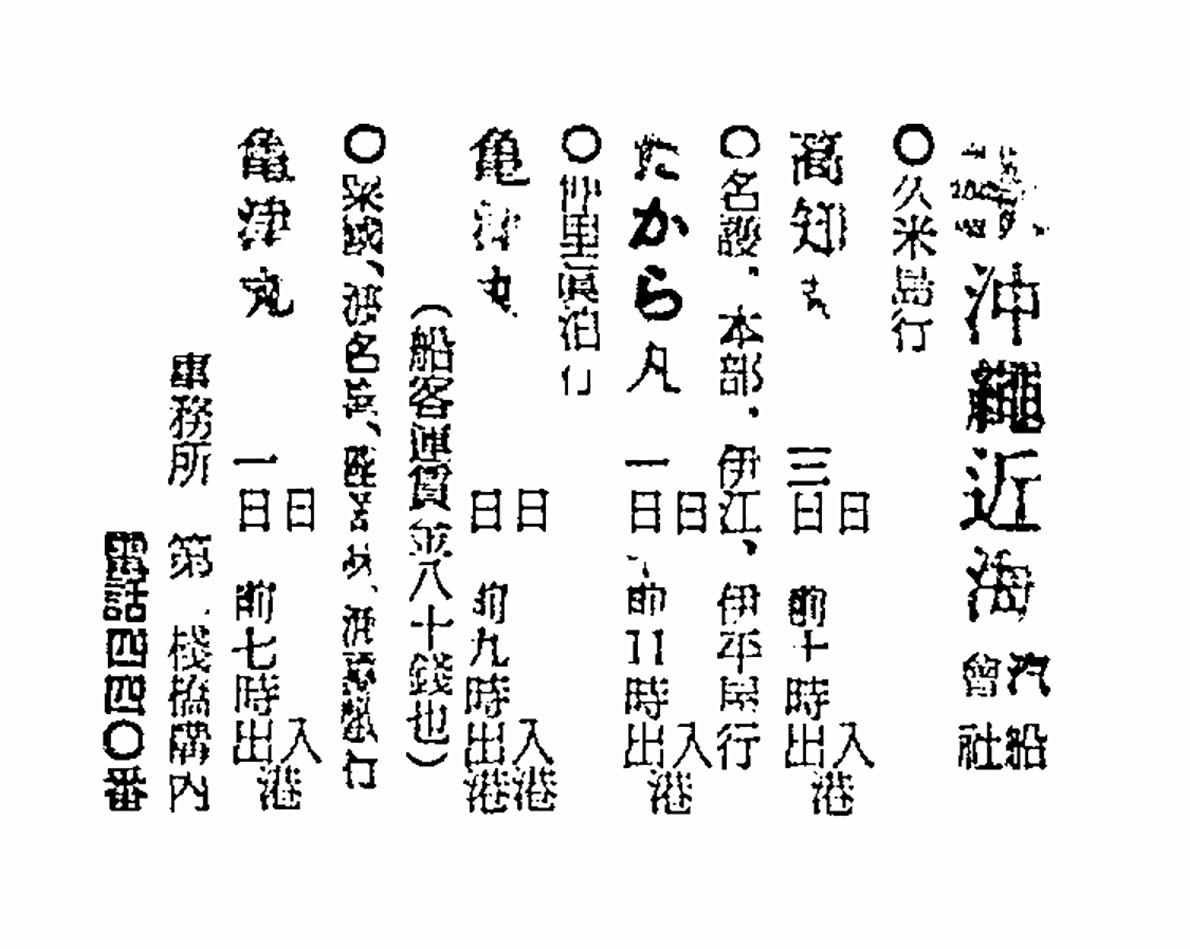 沖繩近海汽船會社
〇久米島行
高知丸 三日 日 前十時出 入港
〇名護、本部、伊江、伊平屋行
たから丸 一日 日 前11時出 入港
〇仲里眞泊行
亀津丸 日 日 前九時出港 入港
(船客運賃金八十錢也)
〇粟國、渡名喜、座
亀津丸 一日 日 前七時出 入港
事務所 第 棧橋構内
電話四四〇番